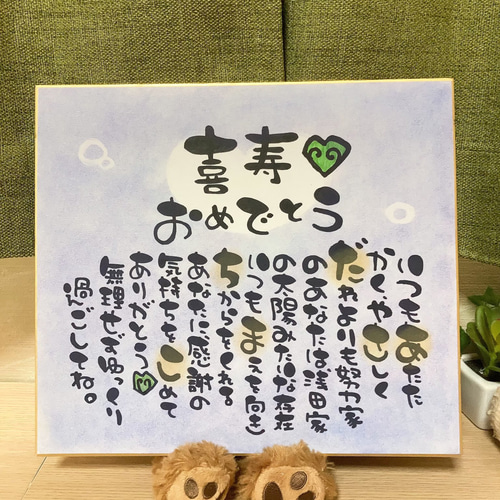 喜寿
おめでとう
いつもあたた
かく、やさしく
だれよりも努力家
のあなたは浅田家
の太陽みたいな存在
いつもまえを向き
ちからをくれる。
あなたに感謝の
気持ちをこめて
ありがとう
無理せずゆっくり
過ごしてね。